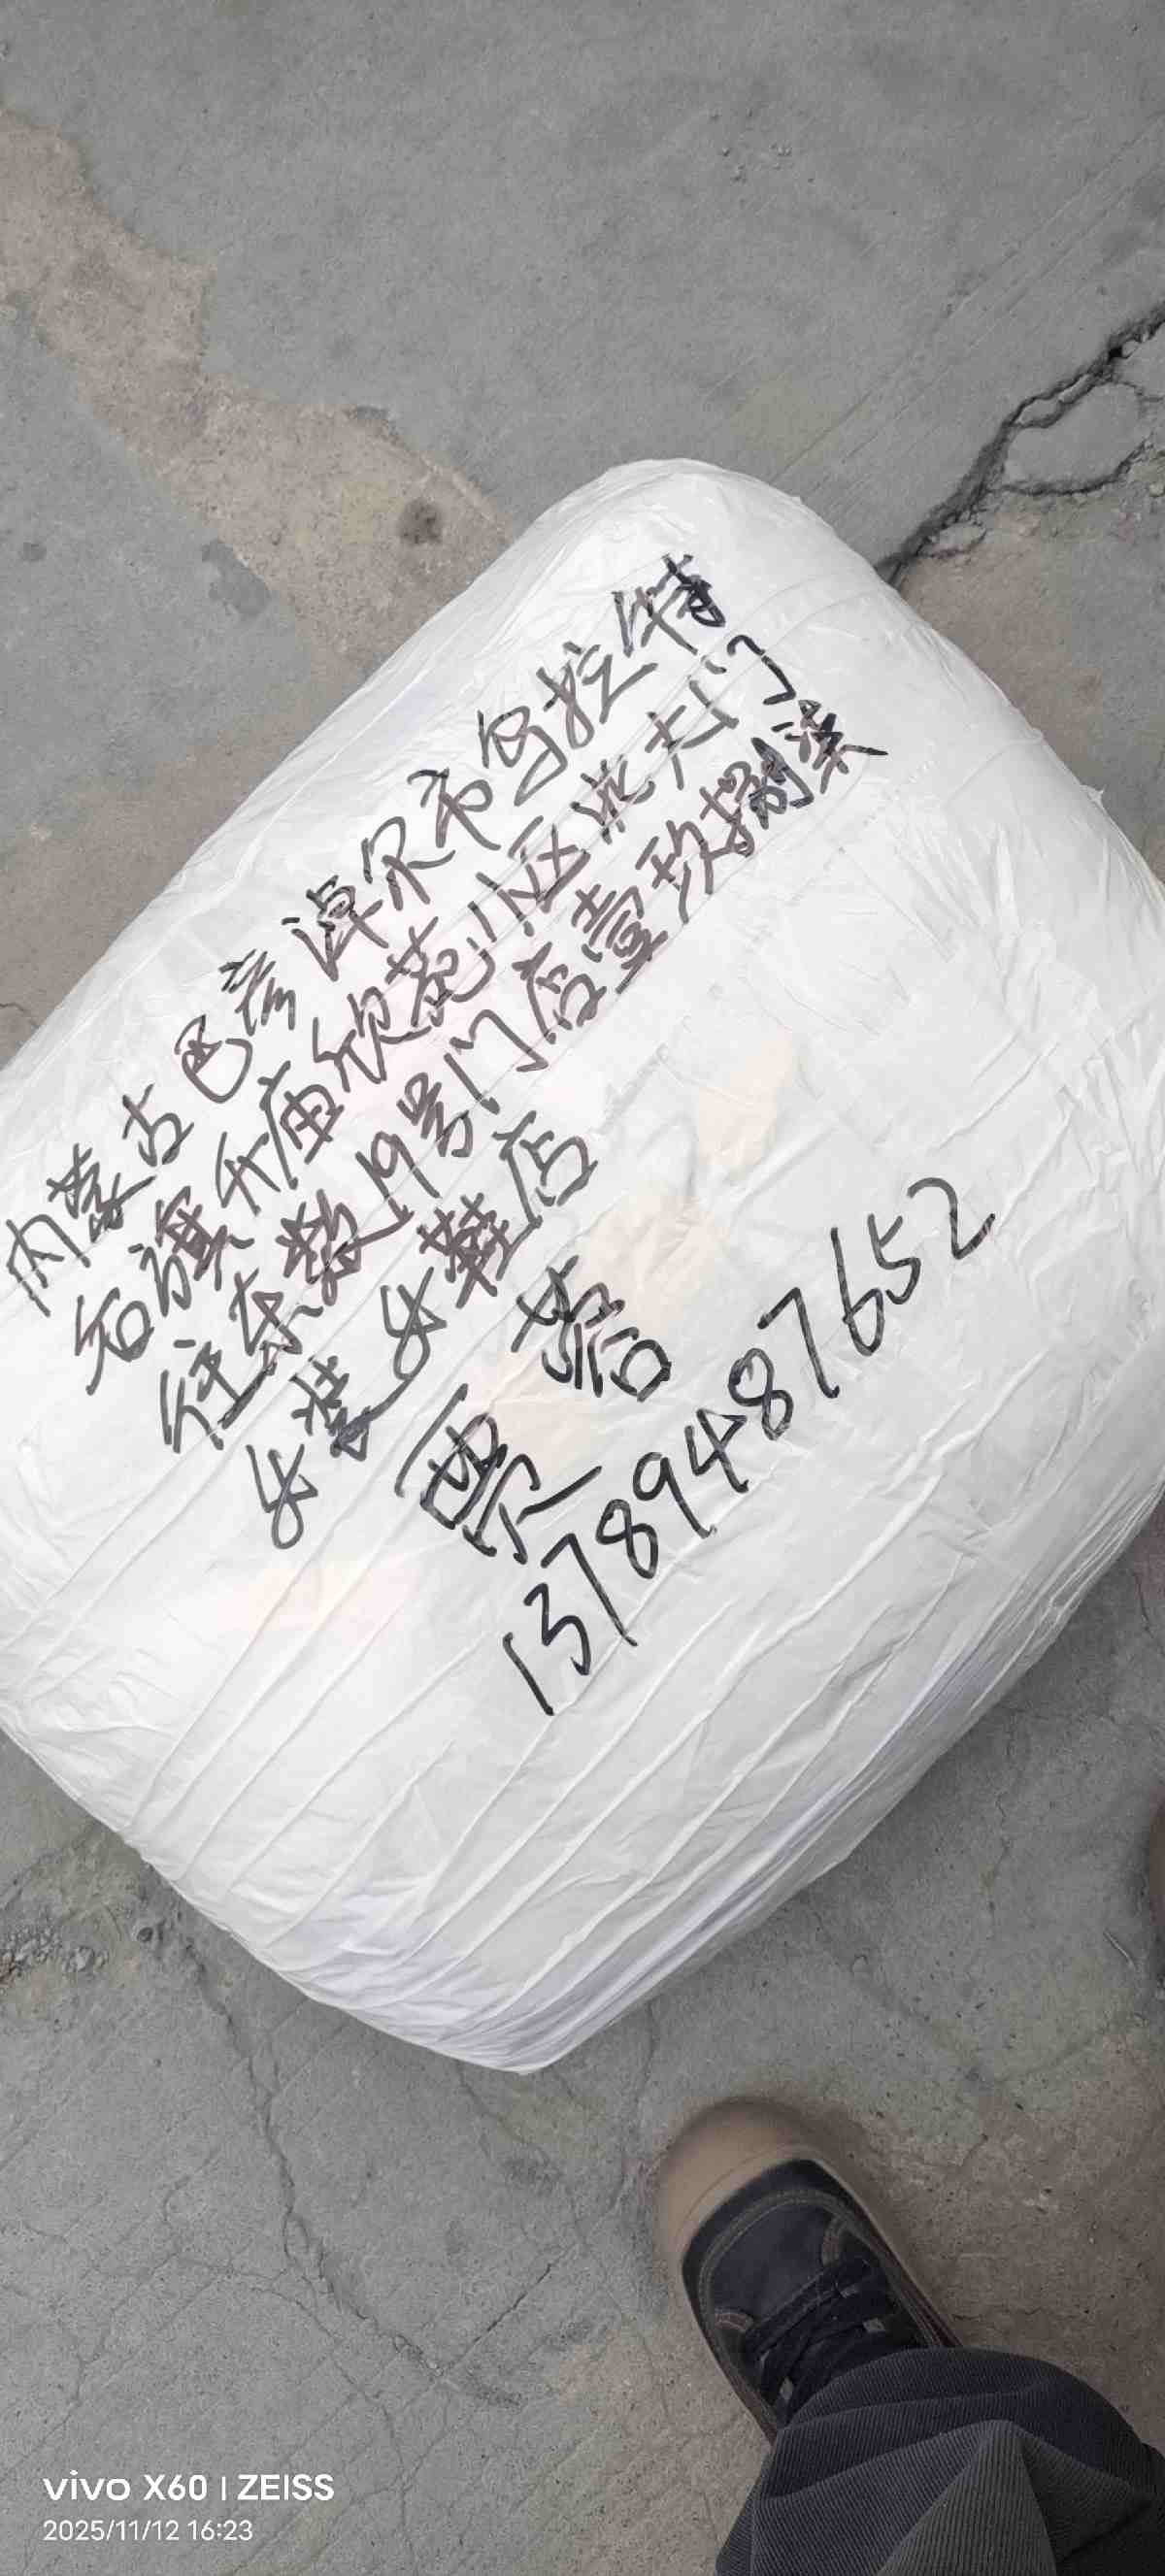 内蒙古巴彦淖尔市乌拉特
右旗升庙欣苑小区北大门
往东数19号门店壹玖捌柒
女装女鞋店
贾蓉
13789487652
vivo X60 | ZEISS
2025/11/12 16:23